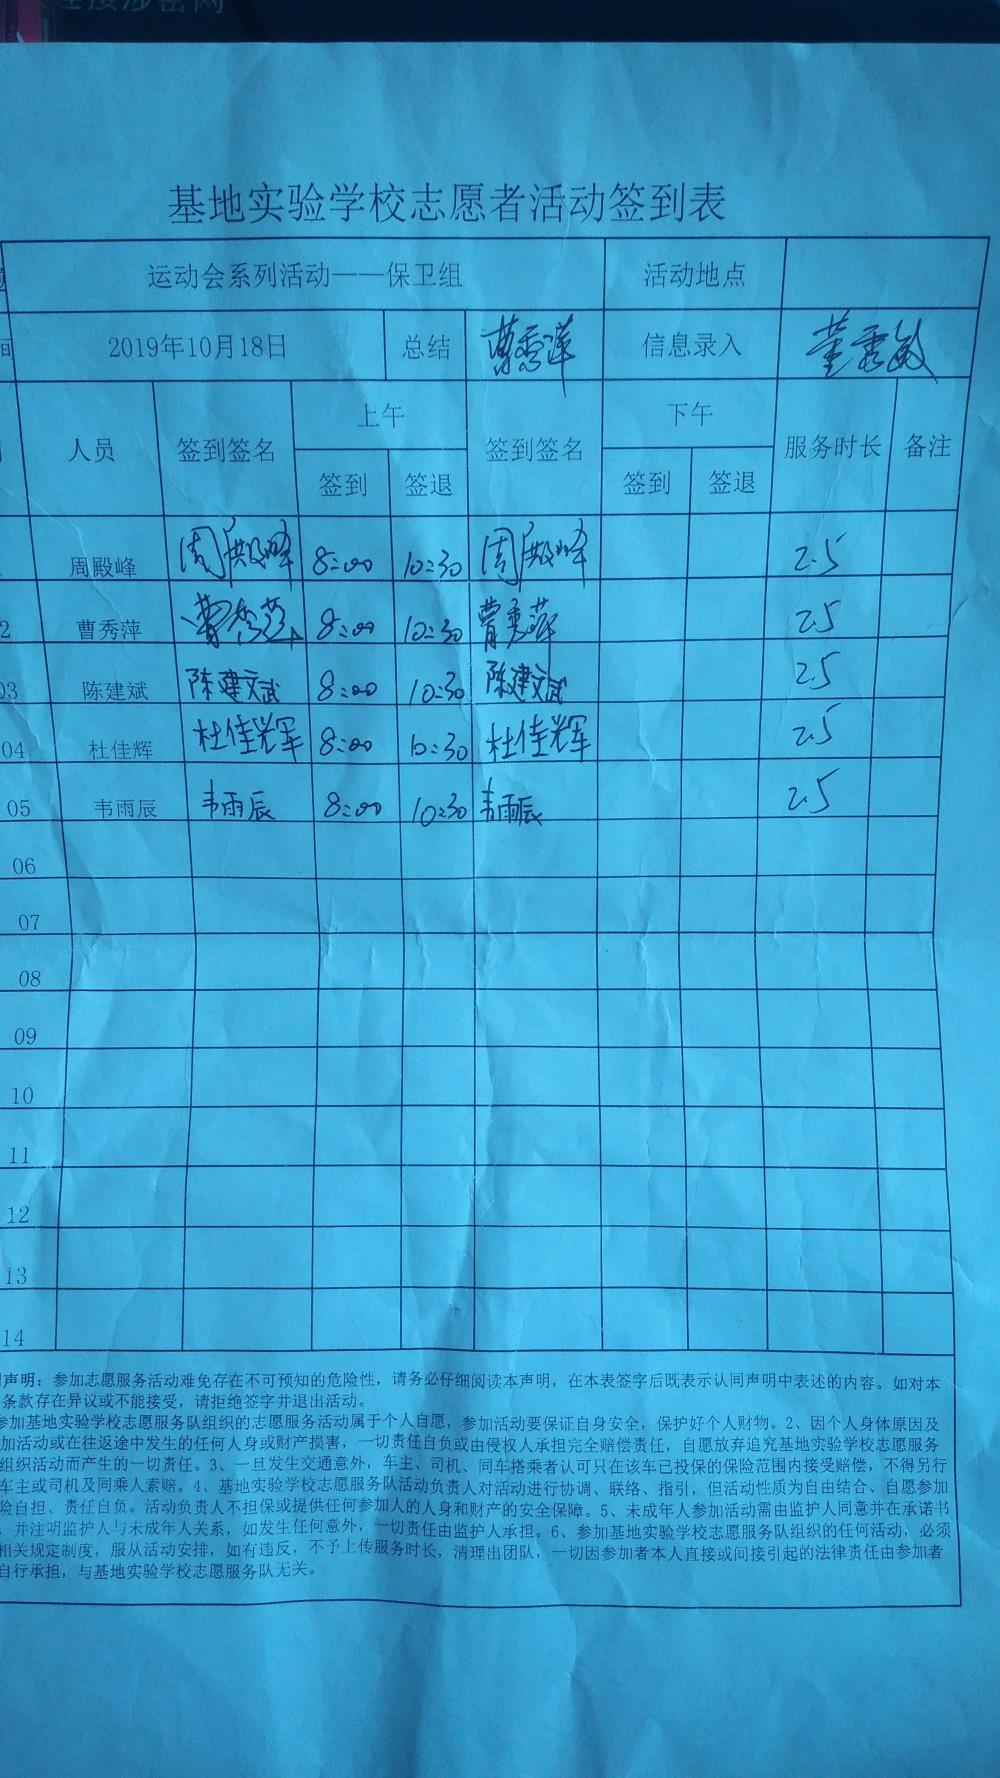 基地实验学校志愿者活动签到表
运动会系列活动——保卫组 活动地点
间 2019年10月18日 总结 曹秀萍 信息录入 董秀敏
人员 签到签名 上午 签到签名 下午 服务时长 备注
签到 签退 签到 签退
周殿峰 周殿峰 8:00 10:30 周殿峰 2.5
2 曹秀萍 曹秀萍 8:00 10:30 曹秀萍 2.5
03 陈建斌 陈建斌 8:00 10:30 陈建斌 2.5
04 杜佳辉 杜佳辉 8:00 10:30 杜佳辉 2.5
05 韦雨辰 韦雨辰 8:00 10:30 韦雨辰 2.5
06
07
08
09
10
11
12
13
14
声明：参加志愿服务活动难免存在不可预知的危险性，请务必仔细阅读本声明，在本表签字后既表示认同声明中表述的内容。如对本
条款存在异议或不能接受，请拒绝签字并退出活动。
参加基地实验学校志愿服务队组织的志愿服务活动属于个人自愿，参加活动要保证自身安全，保护好个人财物。2、因个人身体原因及
加活动或在往返途中发生的任何人身或财产损害，一切责任自负或由侵权人承担完全赔偿责任，自愿放弃追究基地实验学校志愿服务
组织活动而产生的一切责任。3、一旦发生交通意外，车主、司机、同车搭乘者认可只在该车已投保的保险范围内接受赔偿，不得另行
车主或司机及同乘人索赔。4、基地实验学校志愿服务队活动负责人对活动进行协调、联络、指引，但活动性质为自由结合、自愿参加
险自担、责任自负。活动负责人不担保或提供任何参加人的人身和财产的安全保障。5、未成年人参加活动需由监护人同意并在承诺书
，并注明监护人与未成年人关系，如发生任何意外，一切责任由监护人承担。6、参加基地实验学校志愿服务队组织的任何活动，必须
相关规定制度，服从活动安排，如有违反，不予上传服务时长，清理出团队，一切因参加者本人直接或间接引起的法律责任由参加者
自行承担，与基地实验学校志愿服务队无关。